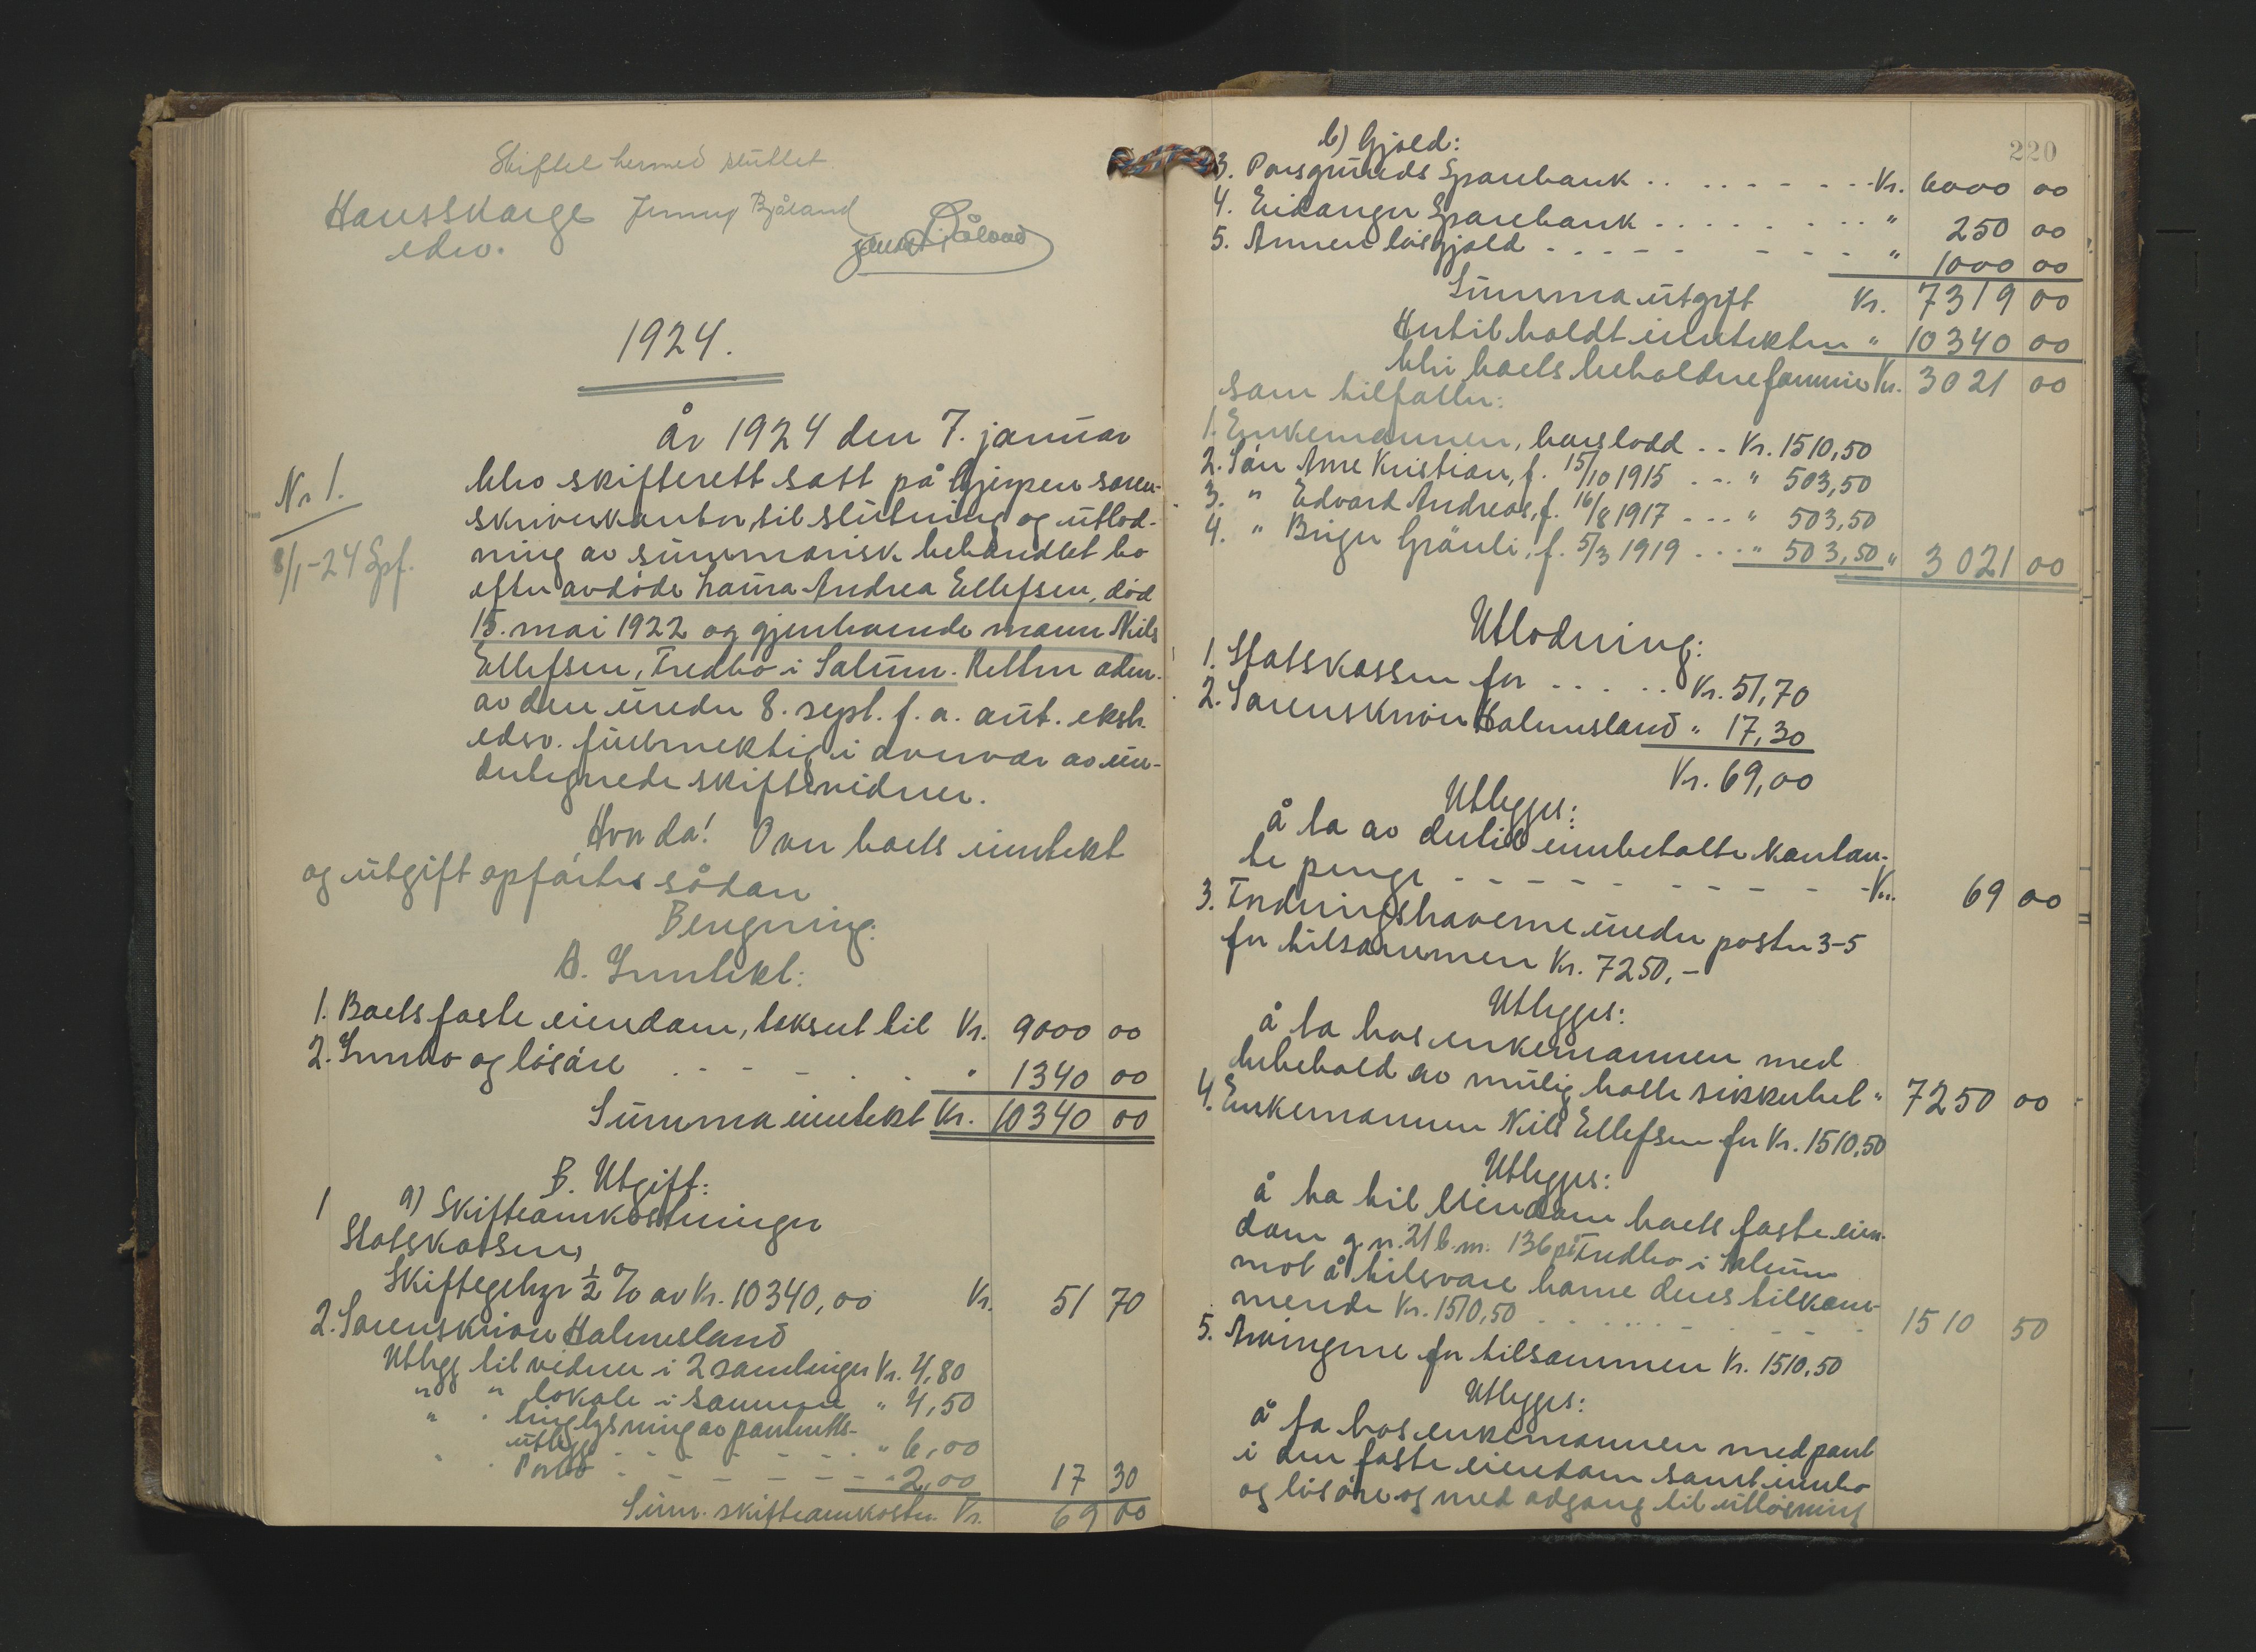 Skiftet hermed sluttet
Hansskarge Jenny Bjåland
edsv.
1924.
År 1924 den 7. januar
Nr 1.
blev skifterett satt på Gjerpen soren-
skriverkontor til slutning og utlod-
ning av summarisk behandlet bo
8/1-24 Spf.
efter avdøde Laura Andrea Ellefsen, død
15. mai 1922 og gjenlevende mann Nils
Ellefsen, Tredbo i Solum. Retten adm.
av den under 8. sept. f. a. aut. ekstr.
edsv. fullmektig i overvær av un-
dertegnede skiftevidner.
Hvorda! Over boets inntekt
og utgift opførtes sådan
Beregning:
A. Inntekt:
1. Boets faste eiendom, taksert til Kr. 9000 00
2. Innbo og løsøre . - - - . . . " 1340 00
Summa inntekt Kr. 10340 00
B. Utgift:
a) Skifteomkostninger
1 Statskassen,
Skiftegebyr 1/2 % av Kr. 10340,00 Kr. 51 70
2. Sorenskriver Holmesland
Utlegg til vidner i 2 samlinger Kr. 4,80
" " lokale i samme " 4,50
" " tinglysning av panteretts-
utlegg - - - - - - " 6,00
" " Porto - - - - - - " 2,00 17 30
Sum. skifteomkostn. Kr. 69 00
220
b) Gjeld:
3. Porsgrunds Sparebank . . . - - - - Kr. 6000 00
4. Eidanger Sparebank . . . . . . . . " 250 00
5. Annen løsgjeld . - - - - - - - " 1000 00
Summa utgift Kr. 7319 00
Hertil holdt inntekten " 10340 00
blir boets beholdne formue Kr. 3021 00
som tilfaller:
1. Enkemannen, boslodd . . Kr. 1510,50
2. Søn Arne Kristian, f. 15/10 1915 . - . " 503,50
3. " Edvard Andreas, f. 16/8 1917 - - - " 503,50
4. " Birger Gråuli, f. 5/3 1919 . . . " 503,50 " 3021 00
Utlodning:
1. Statskassen for . . . . . Kr. 51,70
2. Sorenskriver Holmesland " 17,30
Kr. 69,00
Utlegges:
å ta av dertil innbetalte kontan-
te penge - - - - - - - - - - Kr. 69 00
3. Fordringshaverne under poster 3-5
for tilsammen Kr. 7250,-
Utlegges:
å ta hos enkemannen med
bibehold av mulig holdt sikkerhet " 7250 00
4. Enkemannen Nils Ellefsen for Kr. 1510,50
Utlegges:
å ta til eiendom boets faste eien-
dom g. n. 21 b. nr. 136 på Tredbo i Solum
mot å tilsvare barne deres tilkom-
mende Kr. 1510,50 . . . . . . - - - - 1510 50
5. Arvingene for tilsammen Kr. 1510,50
Utlegges:
å ta hos enkemannen med pant
i den faste eiendom samt innbo
og løsøre og med adgang til utløsning